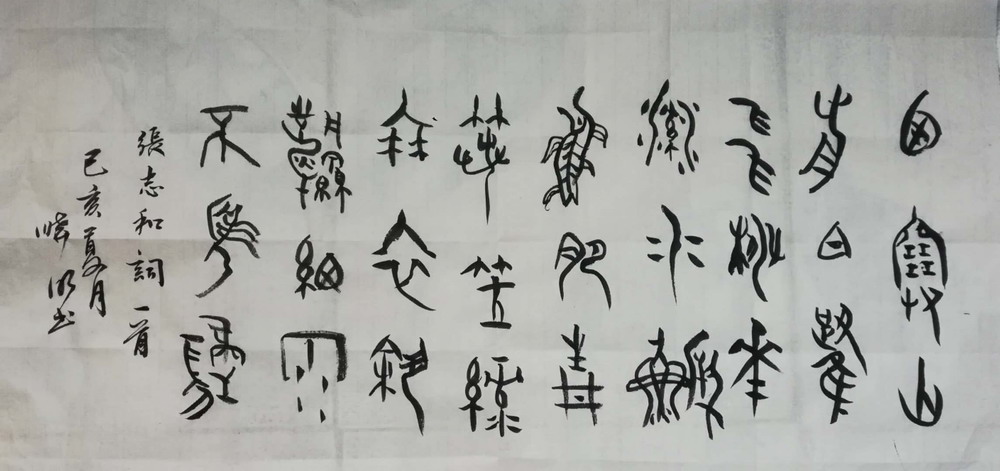 西塞山
前白鷺
飛桃華
流水鱖
魚肥青
箬笠綠
蓑衣斜
風細雨
不須歸
張志和詞一首
己亥夏月
明书